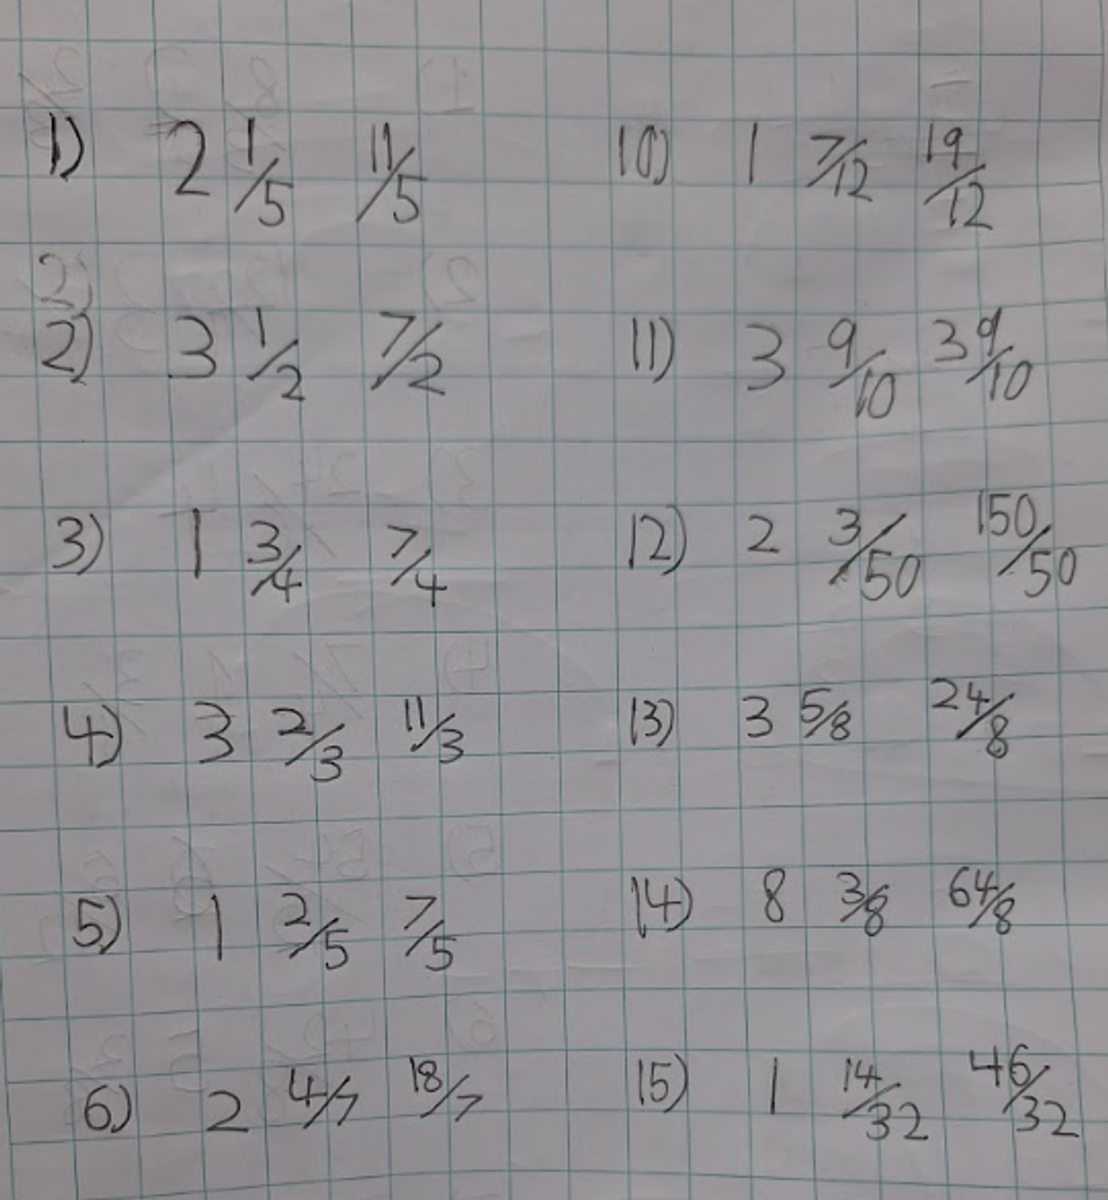 1) 2 1/5 11/5
2) 3 1/2 7/2
3) 1 3/4 7/4
4) 3 2/3 11/3
5) 1 2/5 7/5
6) 2 4/7 18/7
10) 1 7/12 19/12
11) 3 9/10 39/10
12) 2 3/50 150/50
13) 3 5/8 24/8
14) 8 3/8 64/8
15) 1 14/32 46/32